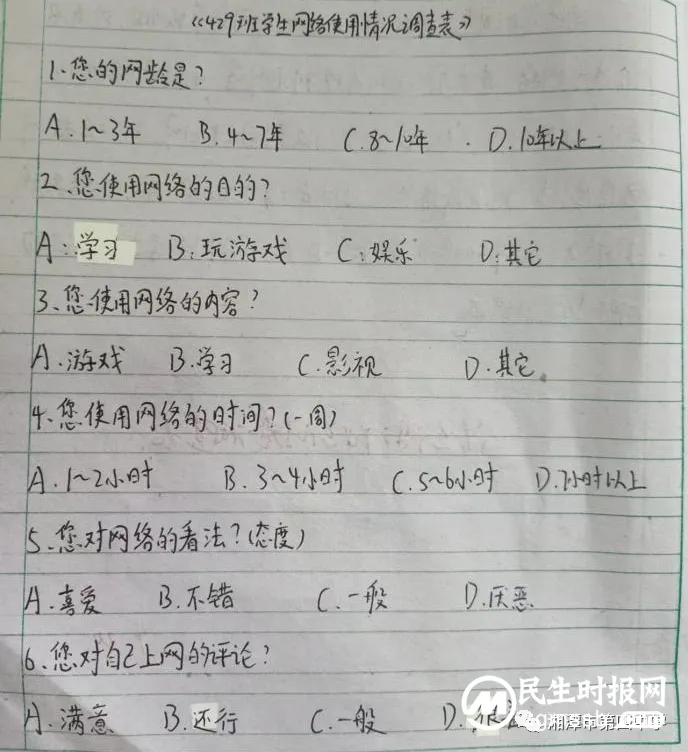 《429班学生网络使用情况调查表》
1.您的网龄是?
A.1~3年 B.4~7年 C.8~10年 D.10年以上
2.您使用网络的目的?
A:学习 B:玩游戏 C:娱乐 D:其它
3、您使用网络的内容?
A.游戏 B.学习 C.影视 D.其它
4.您使用网络的时间?(一周)
A.1~2小时 B.3~4小时 C.5~6小时 D.7小时以上
5、您对网络的看法?(态度)
A.喜爱 B.不错 C.一般 D.厌恶
6、您对自己上网的评论?
A.满意 B.还行 C.一般 D.
民生时报网
湘潭市第四中学